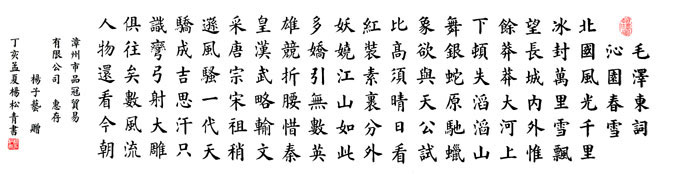 毛澤東詞
沁園春雪
北國風光千里
冰封萬里雪飄
望長城内外惟
餘莽莽大河上
下頓失滔滔山
舞銀蛇原馳蠟
象欲與天公試
比高須晴日看
紅裝素裹分外
妖嬈江山如此
多嬌引無數英
雄競折腰惜秦
皇漢武略輸文
采唐宗宋祖稍
遜風騷一代天
驕成吉思汗只
識彎弓射大雕
俱往矣數風流
人物還看今朝
漳州市品冠貿易
有限公司 惠存
楊子藝 贈
丁亥孟夏楊松青書